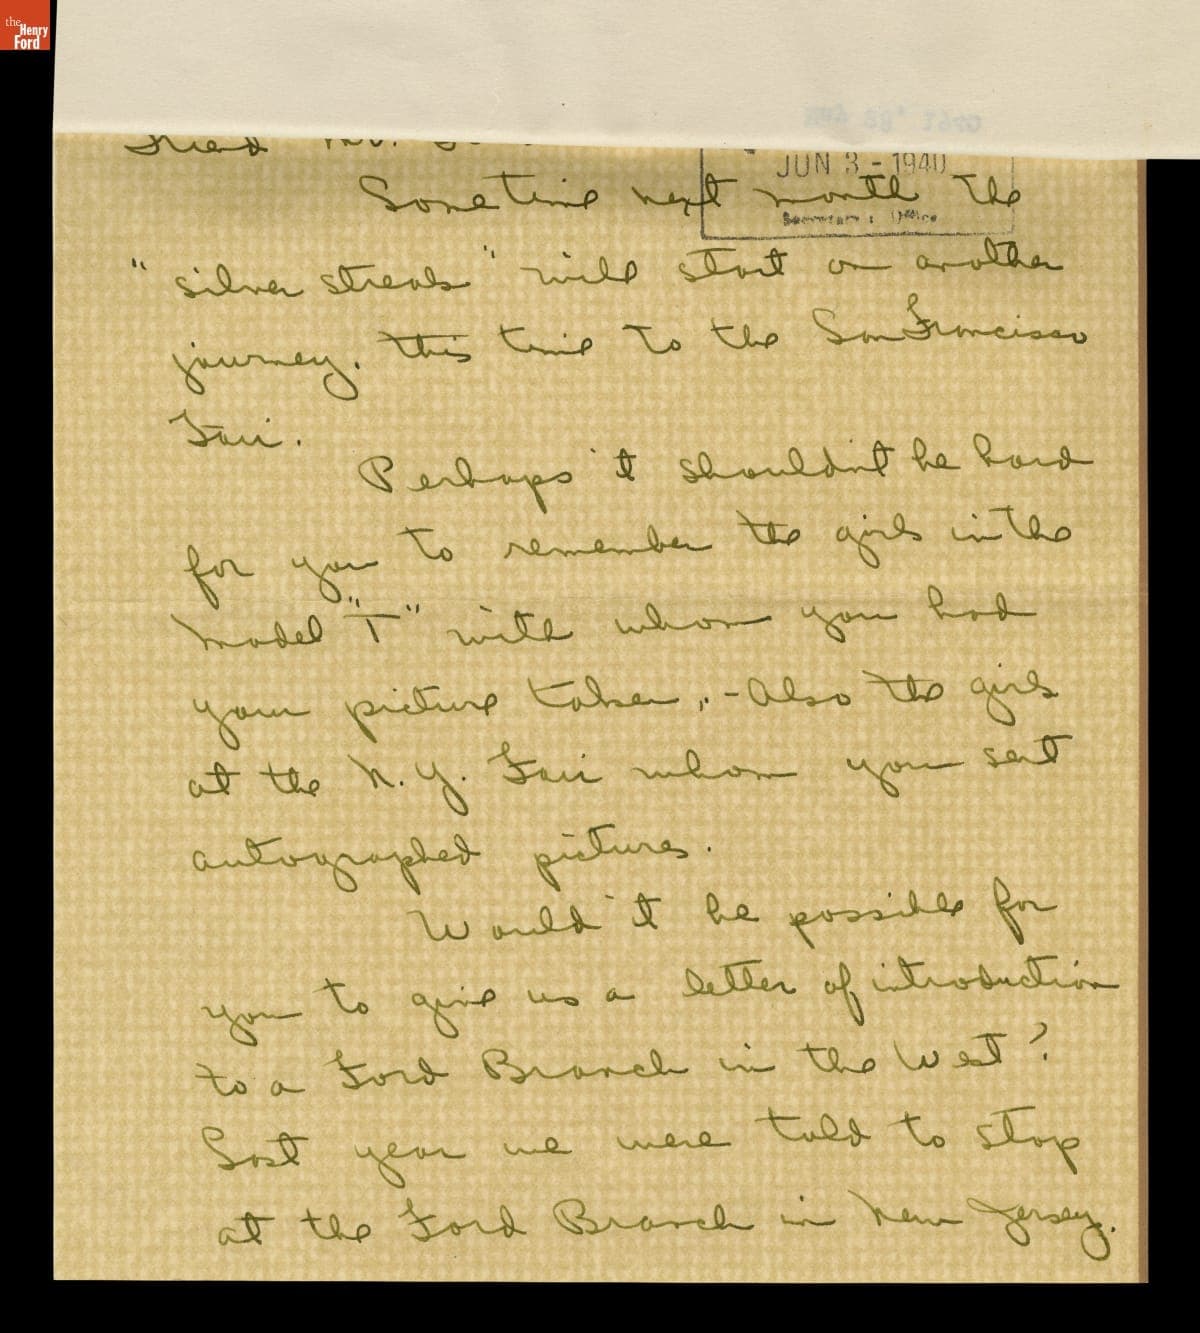 the
Henry
Ford
JUN 3 - 1940
Secretary's Office
Sometime next month the
"silver streak" will start on another
journey. this time to the San Francisco
Fair.
Perhaps it shouldn't be hard
for you to remember the girls in the
model "T" with whom you had
your picture taken, - Also the girls
at the N.Y. Fair whom you sent
autographed pictures.
Would it be possible for
you to give us a letter of introduction
to a Ford Branch in the West?
Last year we were told to stop
at the Ford Branch in New Jersey.